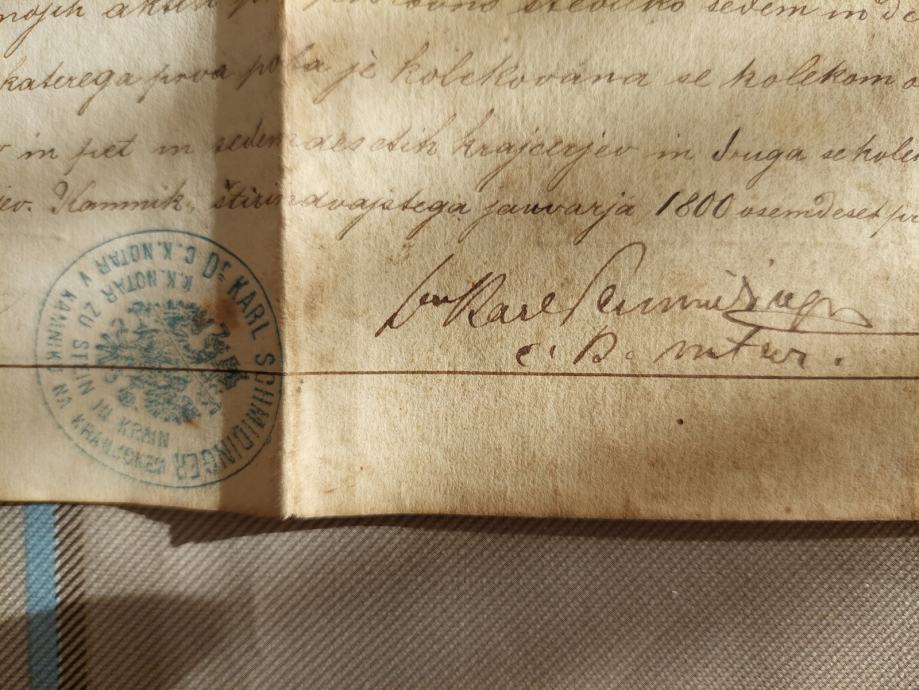 mojih aktih številko sedem in
katerega prva pola je kolekovana se kolekom
in pet in sedemdesetih krajcerjev in druga se kole
jev. Kamnik, štirindvajstega januvarja 1800 osemdeset
Karl Schmidinger
c. k. notar.
KARL SCHMIDINGER
C. K. NOTAR V KAMNIKU NA KRANJSKEM
K. K. NOTAR ZU STEIN IN KRAIN